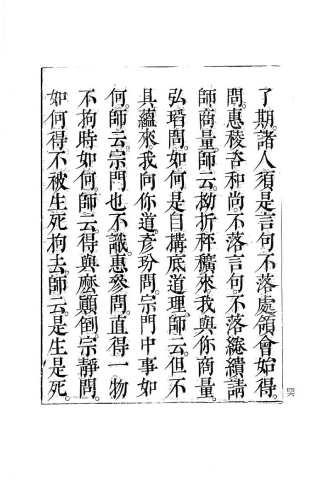 了期諸人須是言句不落處領會始得
問惠稜吞和尚不落言句不落綣繢請
師商量師云抝折秤䥣來我與你商量
弘瑫問如何是自搆底道理師云但不
具蘊來我向你道彥玢問宗門中事如
何師云宗門也不識惠參問直得一物
不拘時如何師云得與麽顚倒宗靜問
如何得不被生死拘去師云是生是死